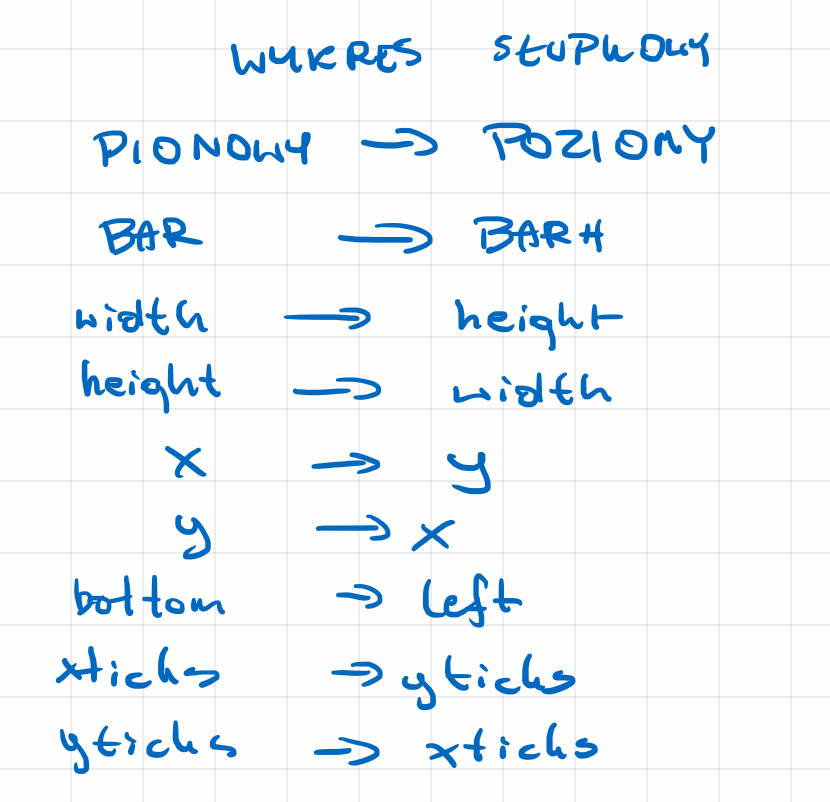 WYKRES SŁUPKOWY
PIONOWY → POZIOMY
BAR → BARH
width → height
height → width
x → y
y → x
bottom → left
xticks → yticks
yticks → xticks